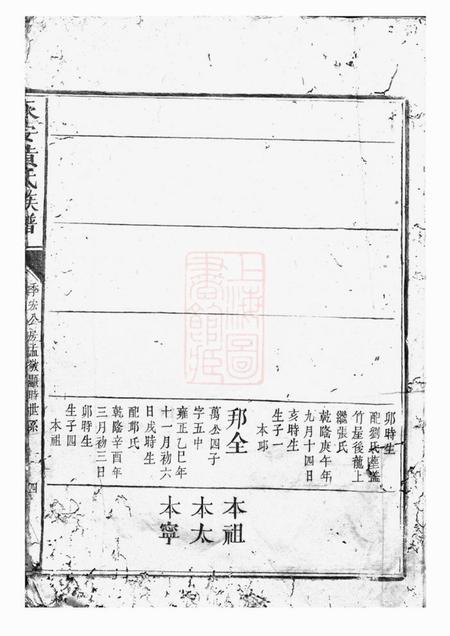 卯時生
配劉氏墓鑑
竹屋後龍上
繼張氏
乾隆庚午年
九月十四日
亥時生
生子一
邦全
四子
字五中
雍正乙巳年
十一月初六
日戌時生
乾隆辛酉年
三月初三日
卯時生
生子四
本祖
本祖
本太
本寧
永安黃氏族譜
季宏公房孟敬顯時世系
四
上海圖書館藏